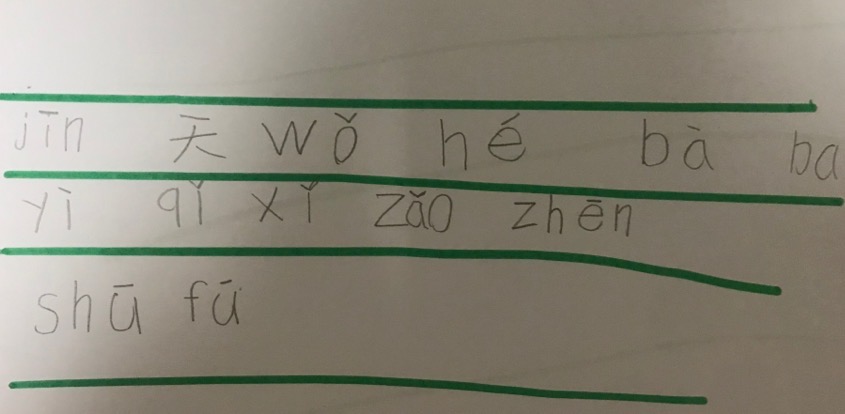 jīn 天 wǒ hé bà ba
yì qǐ xǐ zǎo zhēn
shū fú